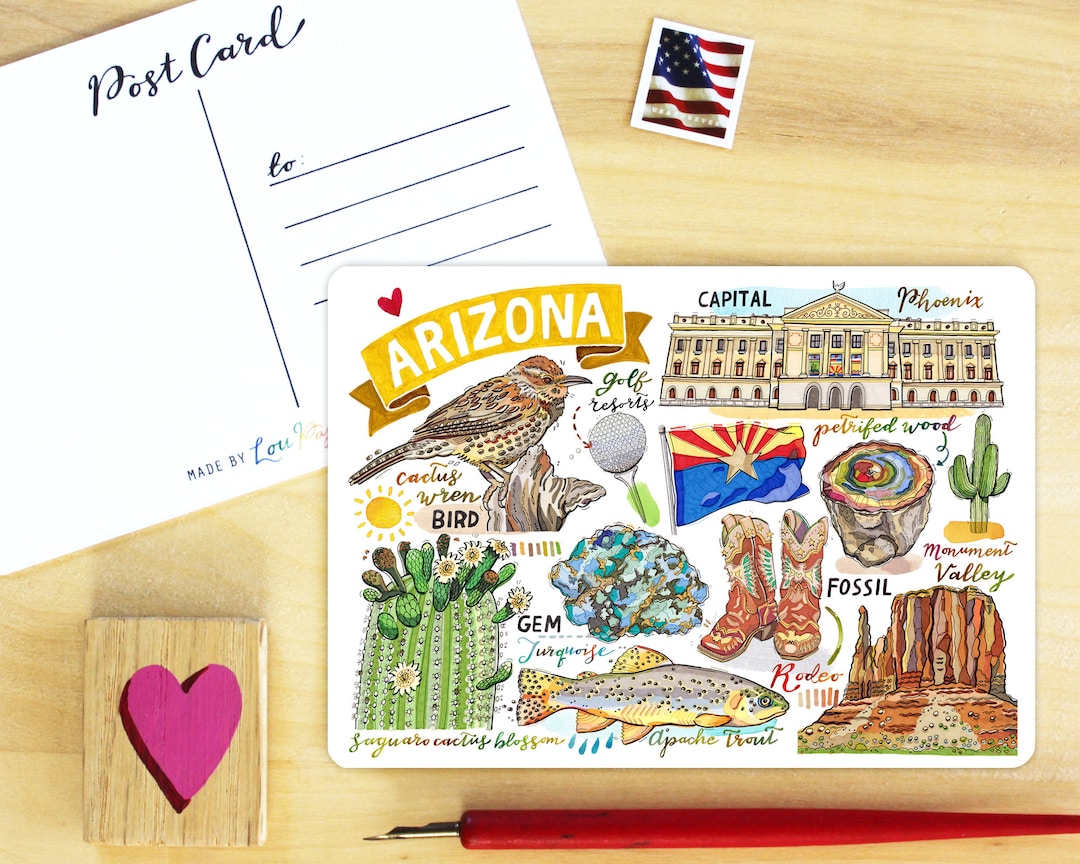 Post Card
to:
MADE BY Lou
ARIZONA
CAPITAL
Phoenix
golf
resorts
petrifed wood
cactus
wren
BIRD
Monument
Valley
FOSSIL
GEM
Turquoise
Rodeo
Saguaro cactus blossom
Apache Trout